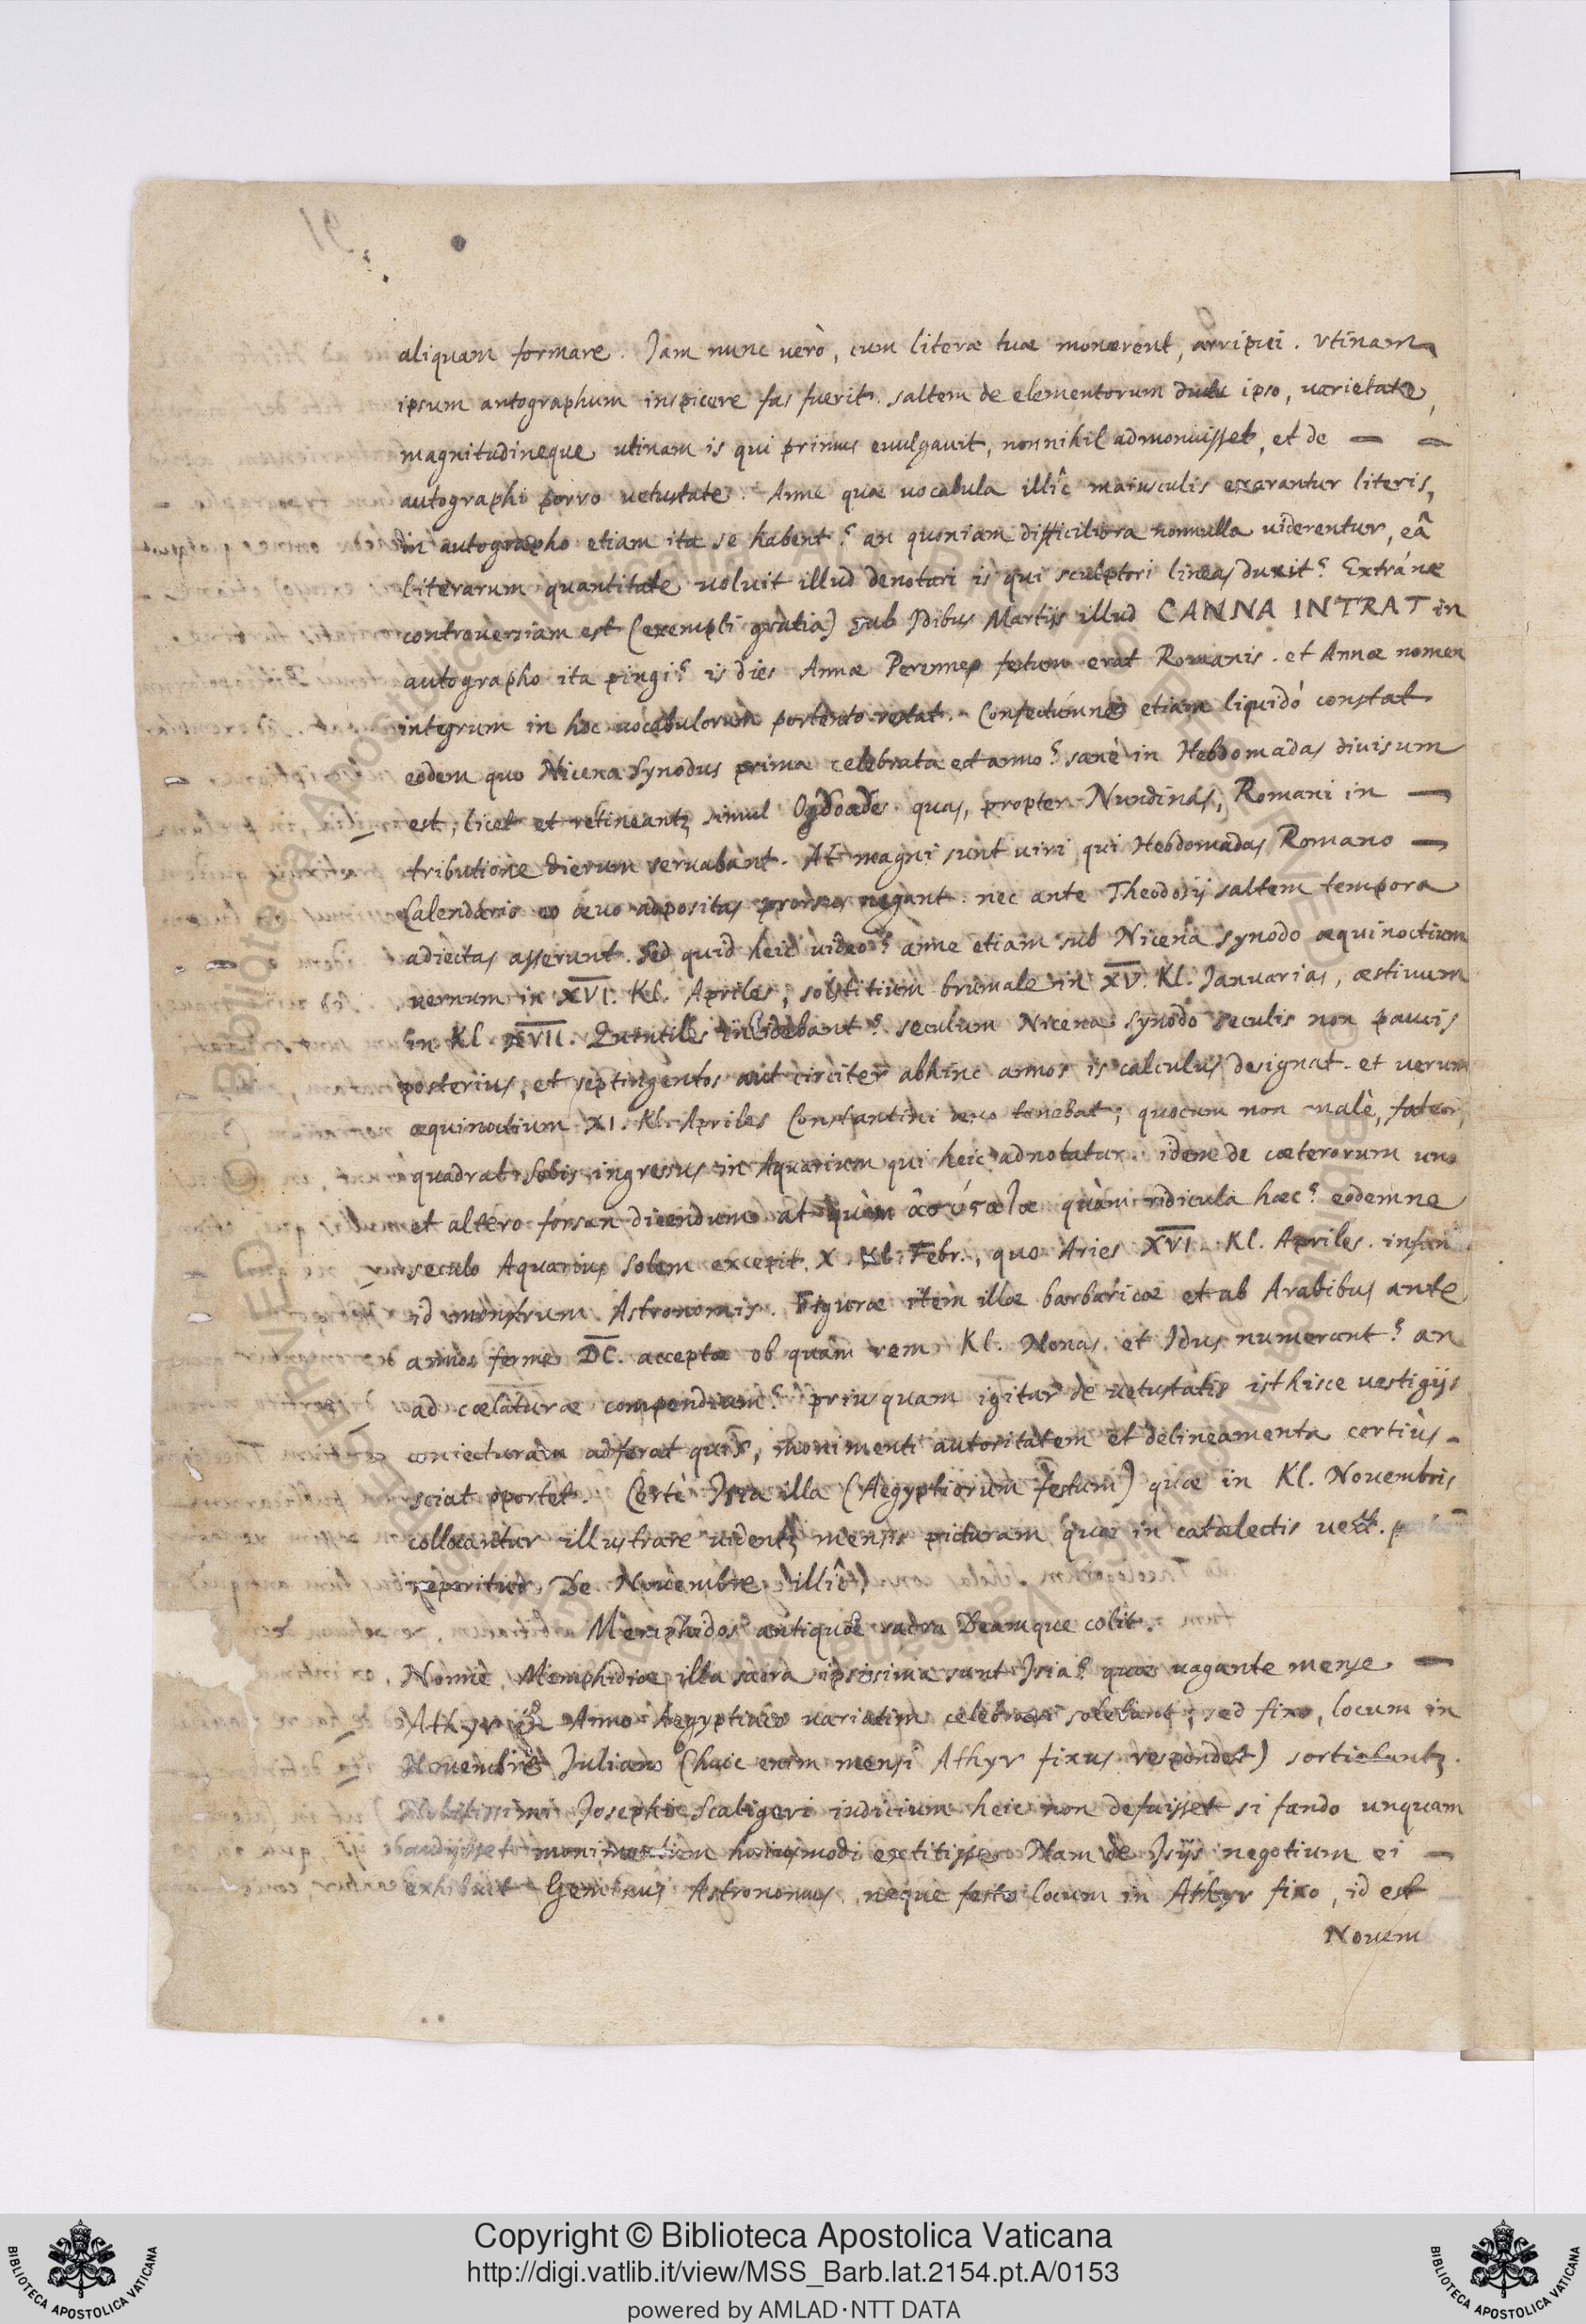 91
aliquam formare. Jam nunc verò, cum literæ tuæ monerent, arripui. vtinam
ipsum autographum inspicere fas fuerit. saltem de elementorum ductu ipso, varietate,
magnitudineque utinam is qui primus evulgavit, nonnihil admonuisset, et de
autographi porro vetustate. Anne quæ vocabula illîc maiusculis exarantur literis,
in autographo etiam ita se habent? an quoniam difficiliora nonnulla viderentur, eâ
literarum quantitate voluit illud denotari is qui sculptori lineas duxit? Extráne
controversiam est (exempli gratia) sub Idibus Martijs illud CANNA INTRAT in
autographo ita pingi? is dies Annæ Perennæ festum erat Romanis. et Annæ nomen
integrum in hoc vocabulorum portento restat. Confectúmne etiam liquidò constat
eodem quo Nicena Synodus prima celebrata est anno? sanè in Hebdomadas divisum
est, licet et retineantr simul Ogdoades quas, propter Nundinas, Romani in
tributione dierum servabant. At magni sunt viri qui Hebdomadas Romano
Calendario eo ævo adpositas prorsus negant. nec ante Theodosij saltem tempora
adiectas asserunt. Sed quid heic video? anne etiam sub Nicena synodo æquinoctium
vernum in XVI. Kl. Apriles, solstitium brumale in XV. Kl. Januarias, æstivum
in Kl. XVII. Quintiles incidebant? seculum Nicena synodo seculis non paucis
posterius, et septingentos aut circiter abhinc annos is calculus designat. et verum
æquinoctium XI. Kl. Apriles Constantini ævo tenebat; quocum non malè, fateor,
quadrat Solis ingressus in Aquarium qui heic adnotatur. idem de cæterorum uno
et altero forsan dicendum. at quàm ἀσύςαlα quàm ridicula hæc? eodemne
seculo Aquarius Solem excepit X. Kl. Febr., quo Aries XVI. Kl. Apriles.
id monstrum Astronomis. Figuræ item illæ barbaricæ et ab Arabibus ante
annos ferme DC. acceptæ ob quàm rem Kl. Nonas et Idus numerant? an
ad cælaturæ compendium? priusquam igitur de vetustatis isthisce vestigijs
coniecturam adferat quis, monimenti autoritatem et delineamenta certiùs
sciat oportet. Certè Isia illa (Aegyptiorum festum) quæ in Kl. Novembris
collocantur illustrare videntr mensis picturam quæ in catalectis vett.
reperitur. De Novembre illîc,
Memphidos antiquæ sacra Deamque colit.
Nonne Memphidiæ illa sacra ipsissima sunt Isia? quæ vagante mense
Athyr in Anno Aegyptiaco variatim celebrari solebant; sed fixo, locum in
Novembre Juliano (huic enim mensi Athyr fixus respondet) sortiebantr.
Nobilissimi Josephi Scaligeri iudicium heic non defuisset si fando unquam
audijsset monimentum huiusmodi extitisse. Nam de Isijs negotium ei
exhibuit Geminus Astronomus, neque festo locum in Athyr fixo, id est
Novem
Copyright © Biblioteca Apostolica Vaticana
http://digi.vatlib.it/view/MSS_Barb.lat.2154.pt.A/0153
powered by AMLAD·NTT DATA